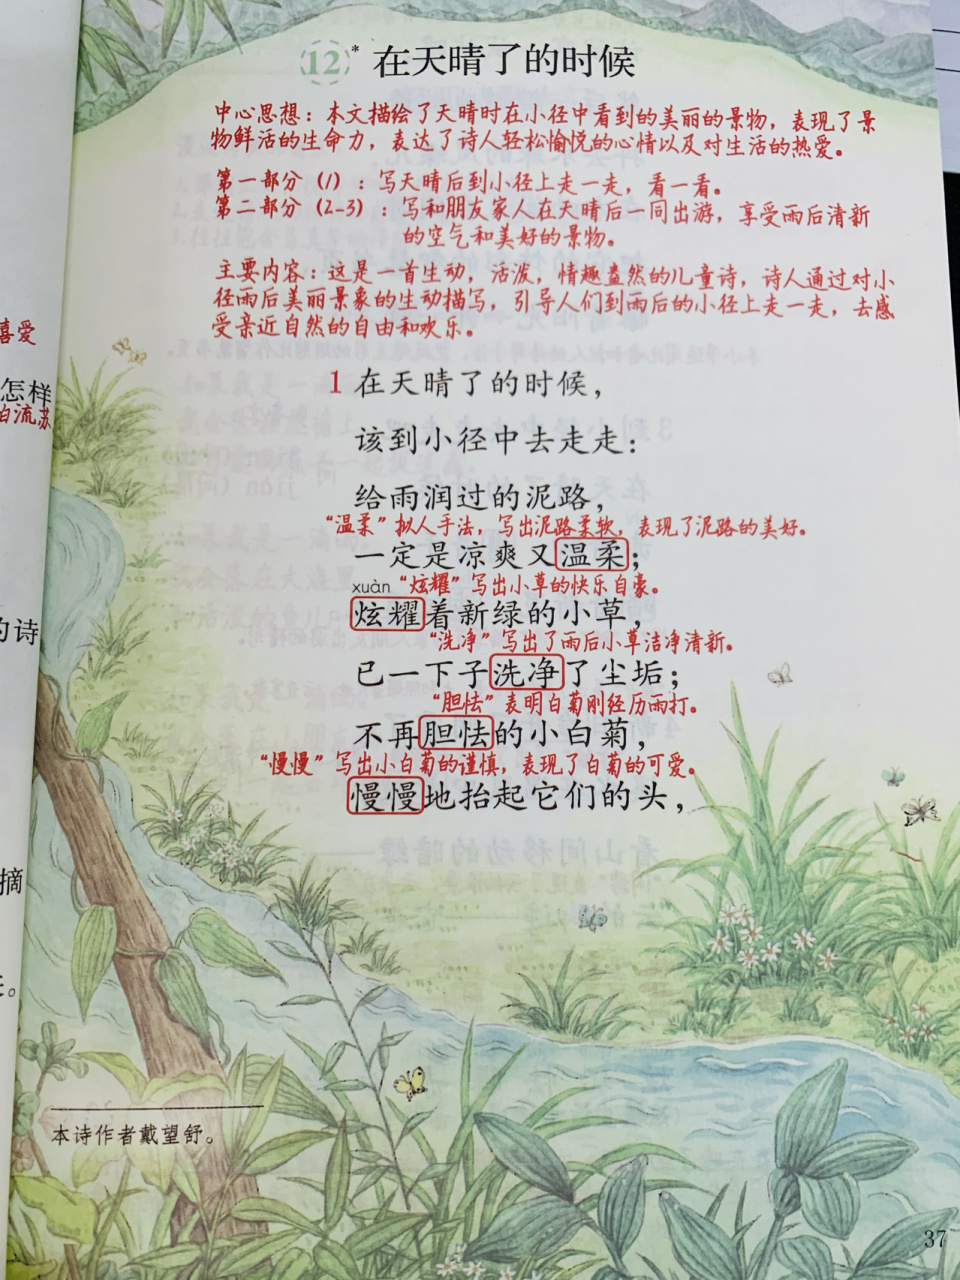 12*在天晴了的时候
中心思想：本文描绘了天晴时在小径中看到的美丽的景物，表现了景
物鲜活的生命力，表达了诗人轻松愉悦的心情以及对生活的热爱。
第一部分（1）：写天晴后到小径上走一走，看一看。
第二部分（2-3）：写和朋友家人在天晴后一同出游，享受雨后清新
的空气和美好的景物。
主要内容：这是一首生动，活泼，情趣盎然的儿童诗，诗人通过对小
径雨后美丽景象的生动描写，引导人们到雨后的小径上走一走，去感
受亲近自然的自由和欢乐。
1 在天晴了的时候，
该到小径中去走走：
给雨润过的泥路，
“温柔”拟人手法，写出泥路柔软，表现了泥路的美好。
一定是凉爽又温柔；
xuàn “炫耀”写出小草的快乐自豪。
炫耀着新绿的小草，
“洗净”写出了雨后小草洁净清新。
已一下子洗净了尘垢；
“胆怯”表明白菊刚经历雨打。
不再胆怯的小白菊，
“慢慢”写出小白菊的谨慎，表现了白菊的可爱。
慢慢地抬起它们的头，
本诗作者戴望舒。
37
喜爱
怎样
白流苏
的诗
摘